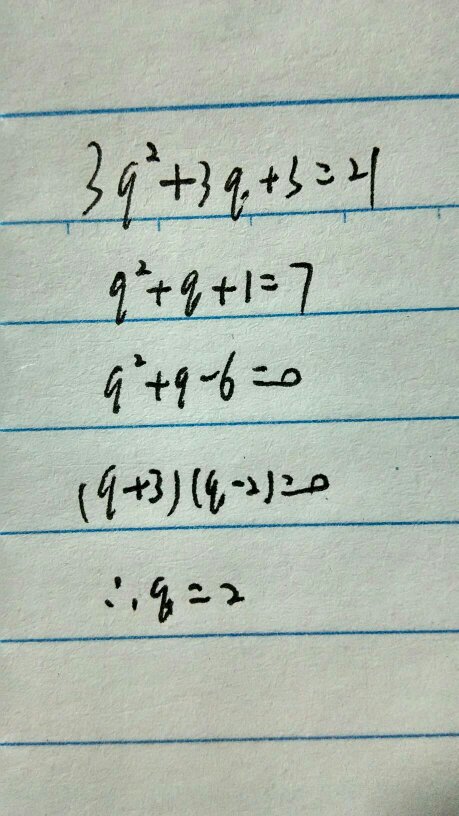 3q²+3q+3=21
q²+q+1=7
q²+q-6=0
(q+3)(q-2)=0
∴q=2